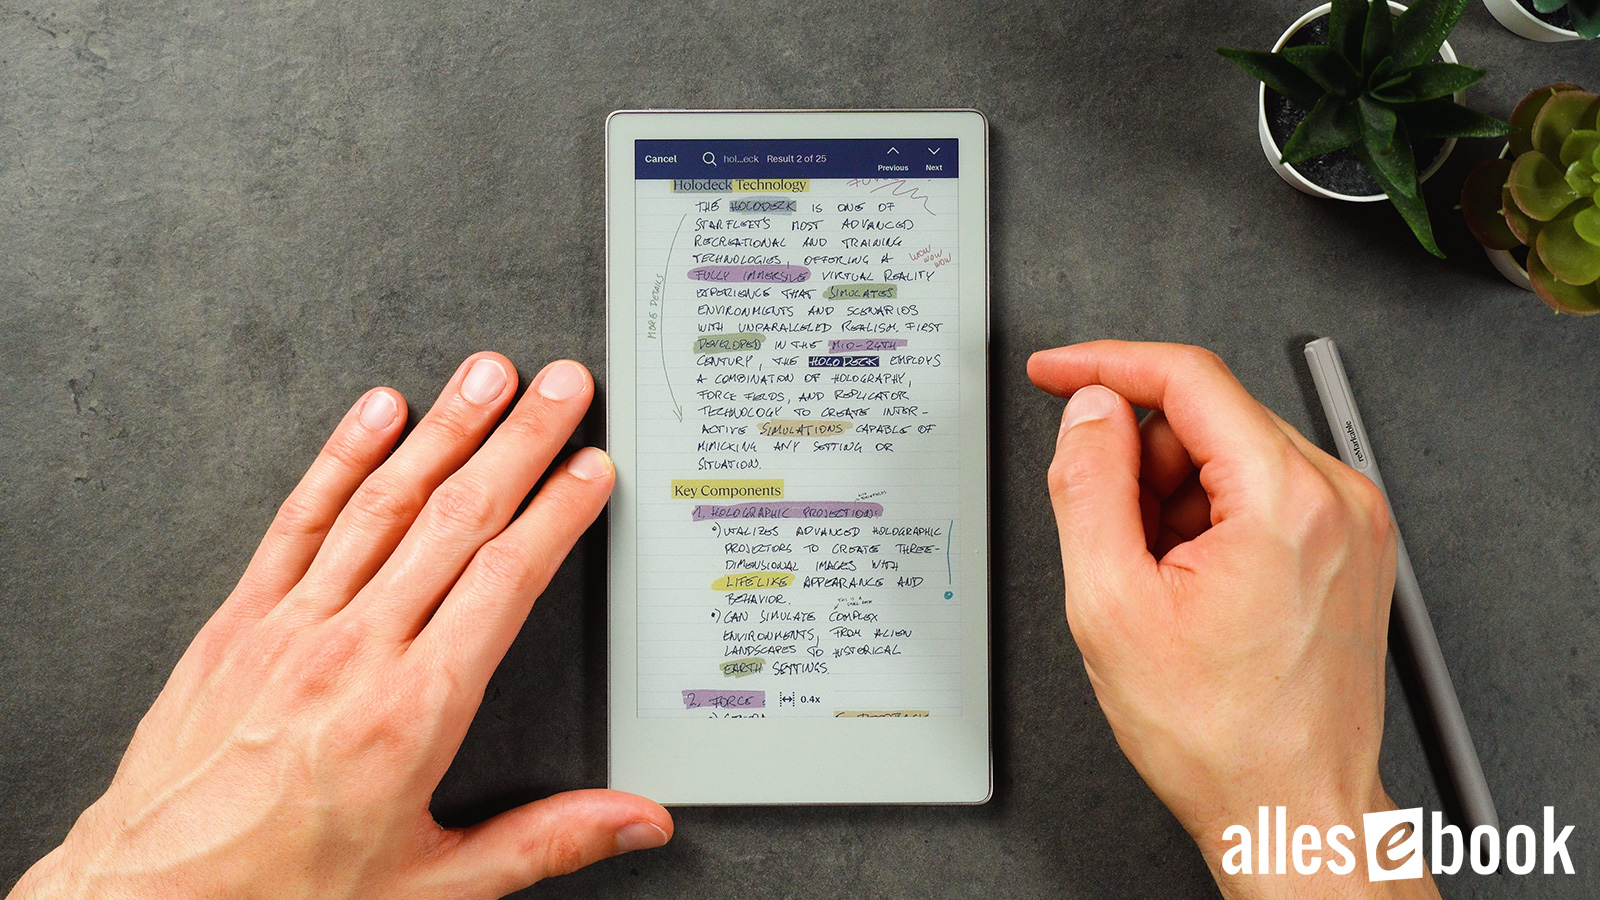 Cancel hol...eck Result 2 of 25 Previous Next
Holodeck Technology
THE HOLODECK IS ONE OF
STARFLEETS MOST ADVANCED
RECREATIONAL AND TRAINING
TECHNOLOGIES, OFFERING A
WOW WOW WOW
FULLY IMMERSIVE VIRTUAL REALITY
EXPERIENCE THAT SIMULATES
MORE DETAILS
ENVIRONMENTS AND SCENARIOS
WITH UNPARALLELED REALISM. FIRST
DEVELOPED IN THE MID-24TH
CENTURY, THE HOLODECK EMPLOYS
A COMBINATION OF HOLOGRAPHY,
FORCE FIELDS, AND REPLICATOR
TECHNOLOGY TO CREATE INTER-
ACTIVE SIMULATIONS CAPABLE OF
MIMICKING ANY SETTING OR
SITUATION.
Key Components
1. HOLOGRAPHIC PROJECTION:
•) UTALIZES ADVANCED HOLOGRAPHIC
PROJECTORS TO CREATE THREE-
DIMENSIONAL IMAGES WITH
LIFELIKE APPEARANCE AND
BEHAVIOR.
THIS IS A
•) CAN SIMULATE COMPLEX
ENVIRONMENTS, FROM ALIEN
LANDSCAPES TO HISTORICAL
EARTH SETTINGS.
2. FORCE 0.4x
reMarkable
allesebook